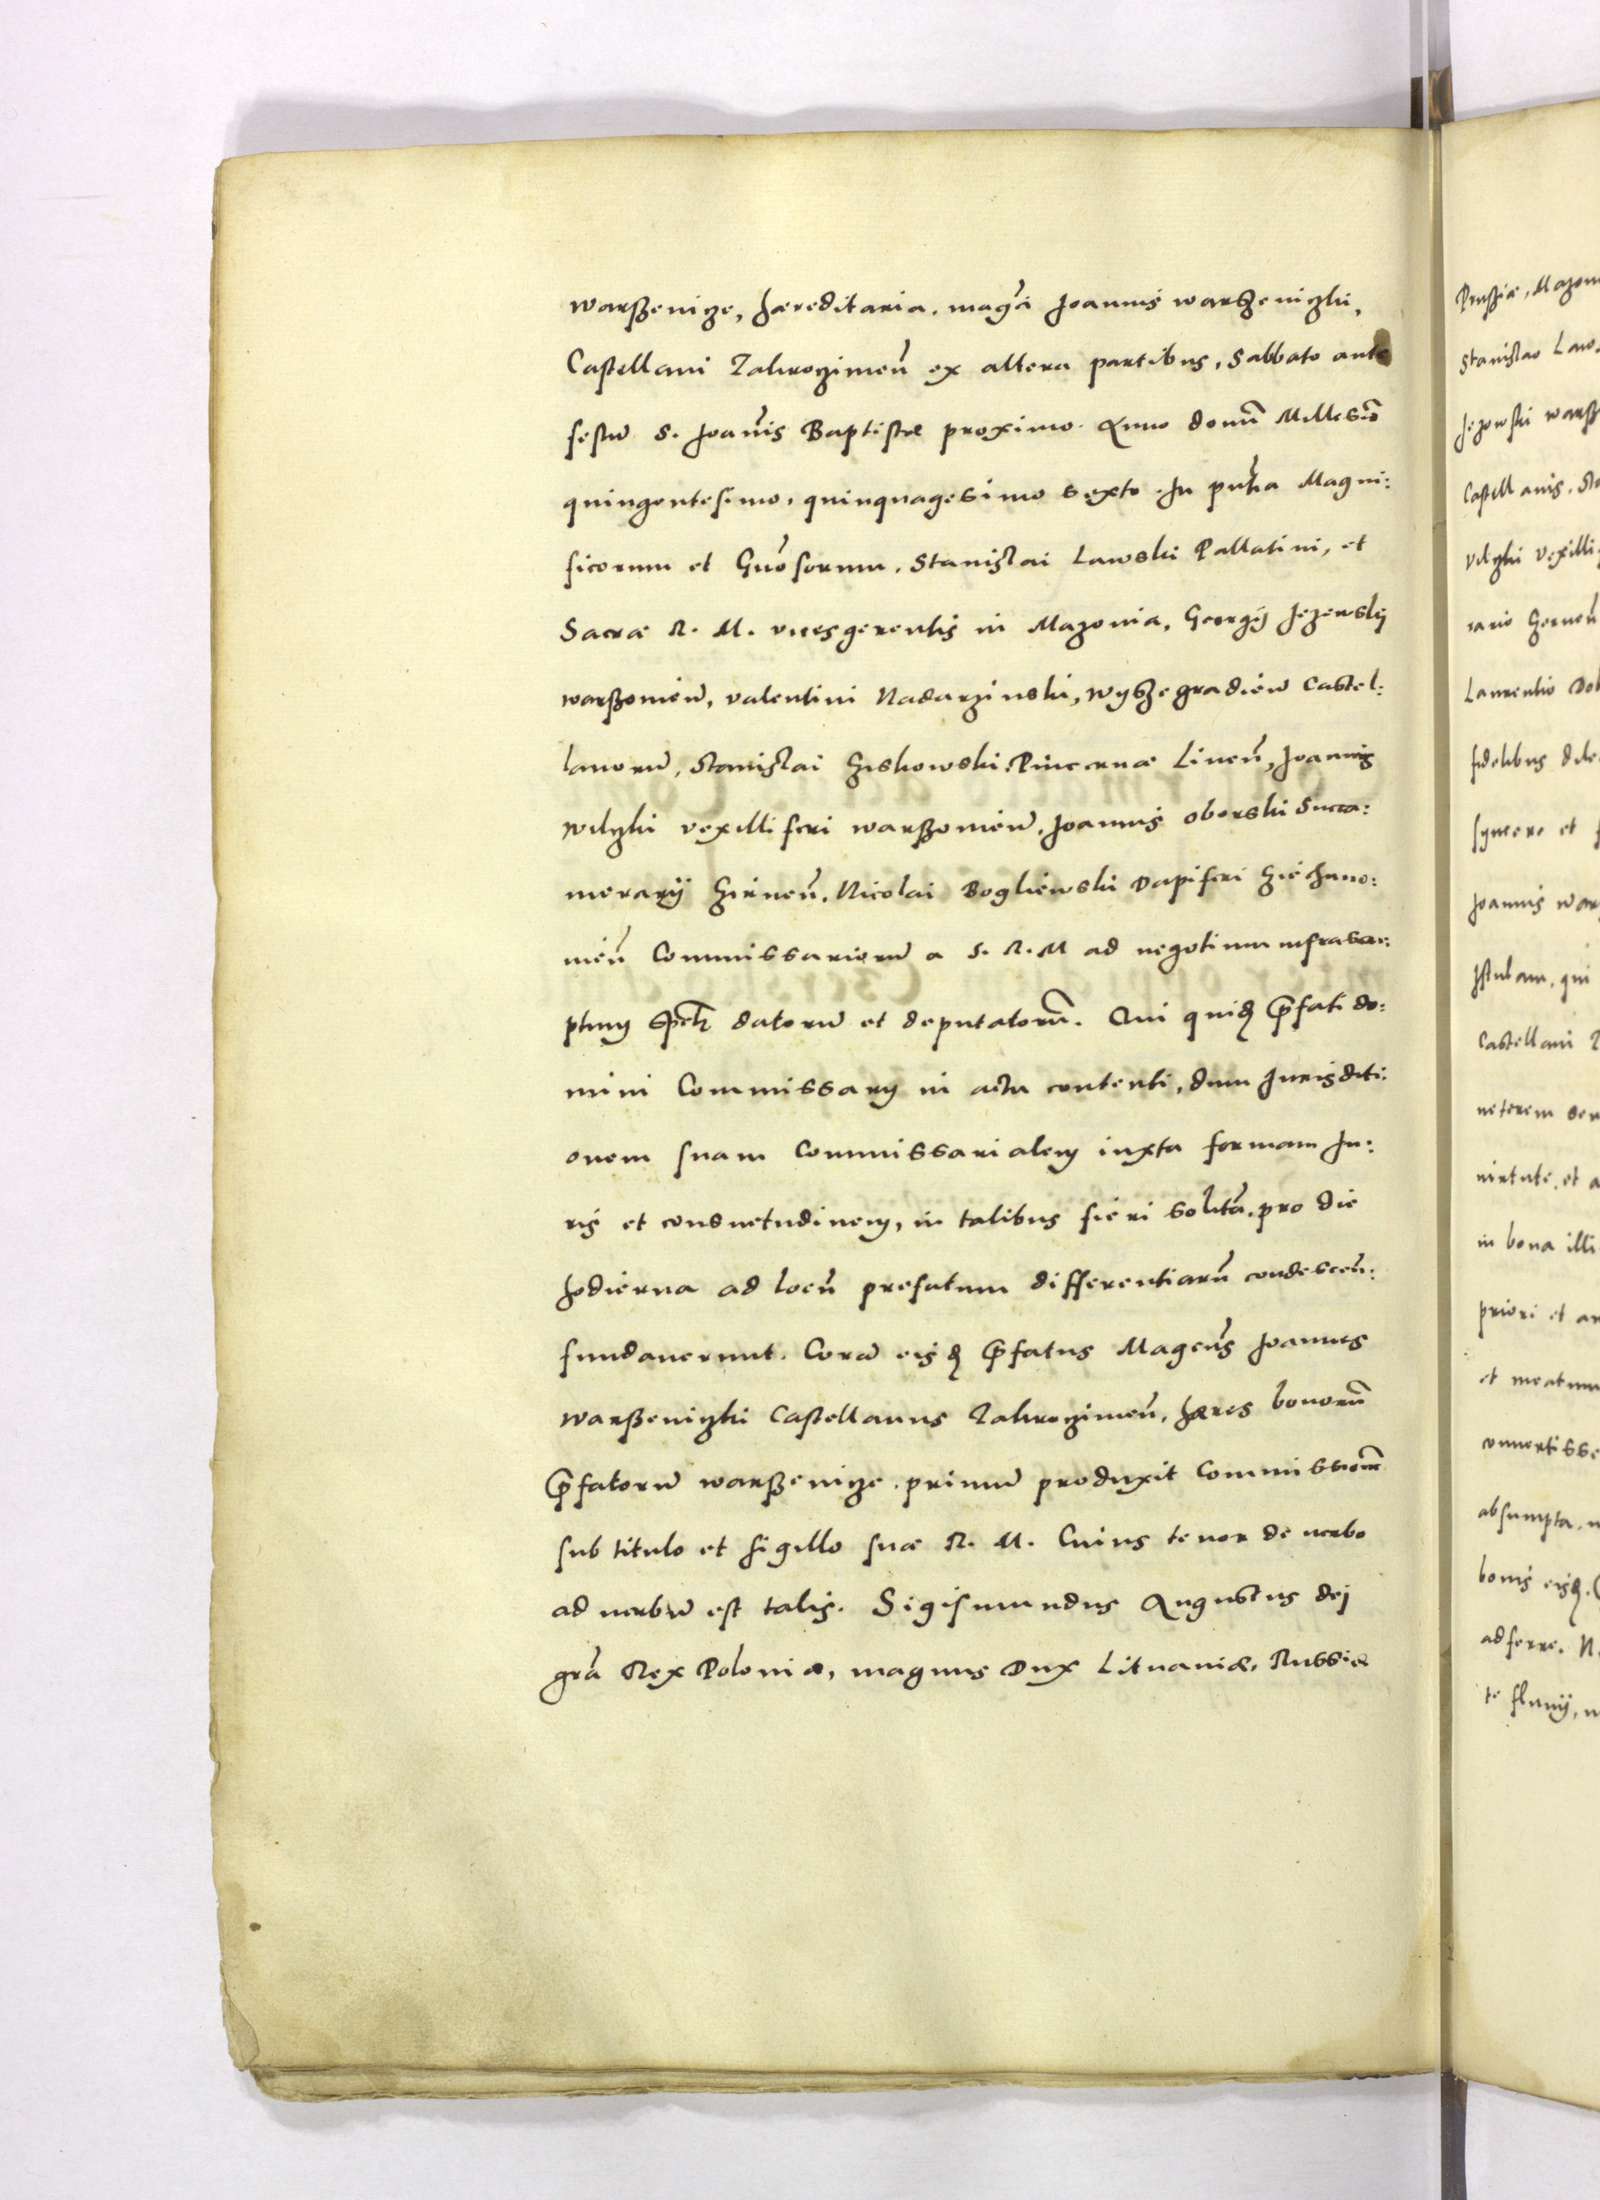 warßenicze, hæreditaria. magci Joannis warßeniczki,
Castellani Zakroczimen̄ ex altera partibus, Sabbato ante
festū S. Joañis Baptistæ proximo. Anno domī Millesīo
quingentesimo. quinquagesimo sexto. In pn̄tia Magni:
ficorum et Gn̄osorum. Stanislai Lawski Pallatini, et
Sacræ R. M. vicesgerentis in Mazonia, Georgij Jezewskij
warßonien̄, valentini Nadarzinski, wyszegradien̄ Castel:
lanorū, Stanislai Giskowski Pincernæ Linen̄, Joannis
wilczki vexilliferi warßonien̄. Joannis oborski Succa:
merarij Czirnen̄. Nicolai Bogliewski Dapiferi Cziechano:
nien̄ Commissariorū a S. R. M ad negotium infrascri:
ptum spctr datorū et deputatorū. Qui quidē p̄fati do:
mini Commissarij in actu contenti, dum Jurisditi:
onem suam Commissarialem iuxta formam Ju:
ris et consuetudinem, in talibus fieri solitā. pro die
hodierna ad locū prefatum differentiarū condescen̄:
fundauerunt. Corā eisdē p̄fatus Magcus Joannes
warßeniczki Castellanus Zakroczimen̄, hæres bonorū
p̄fatorū warßenicze. primū produxit Commissionē
sub titulo et sigillo suæ R. M. Cuius tenor de uerbo
ad uerbū est talis. Sigismundus Augustus dej
grā Rex Poloniæ, magnus Dux Lituaniæ, Russiæ
Prussiæ, Mazon
Stanislao Law
Jezowski warß
Castellanis, Sta
vilczki vexilli
rario Czernen̄
Laurentio Dob
fidelibus dile
syncere et f
Joannis war
Istulam, qui
Castellani Z
ueterem
uirtute, et a
in bona illi
priori et an
et meatum
conuertisse
absumpta.
bonis eisdē.
adferre. N
te fluuij,